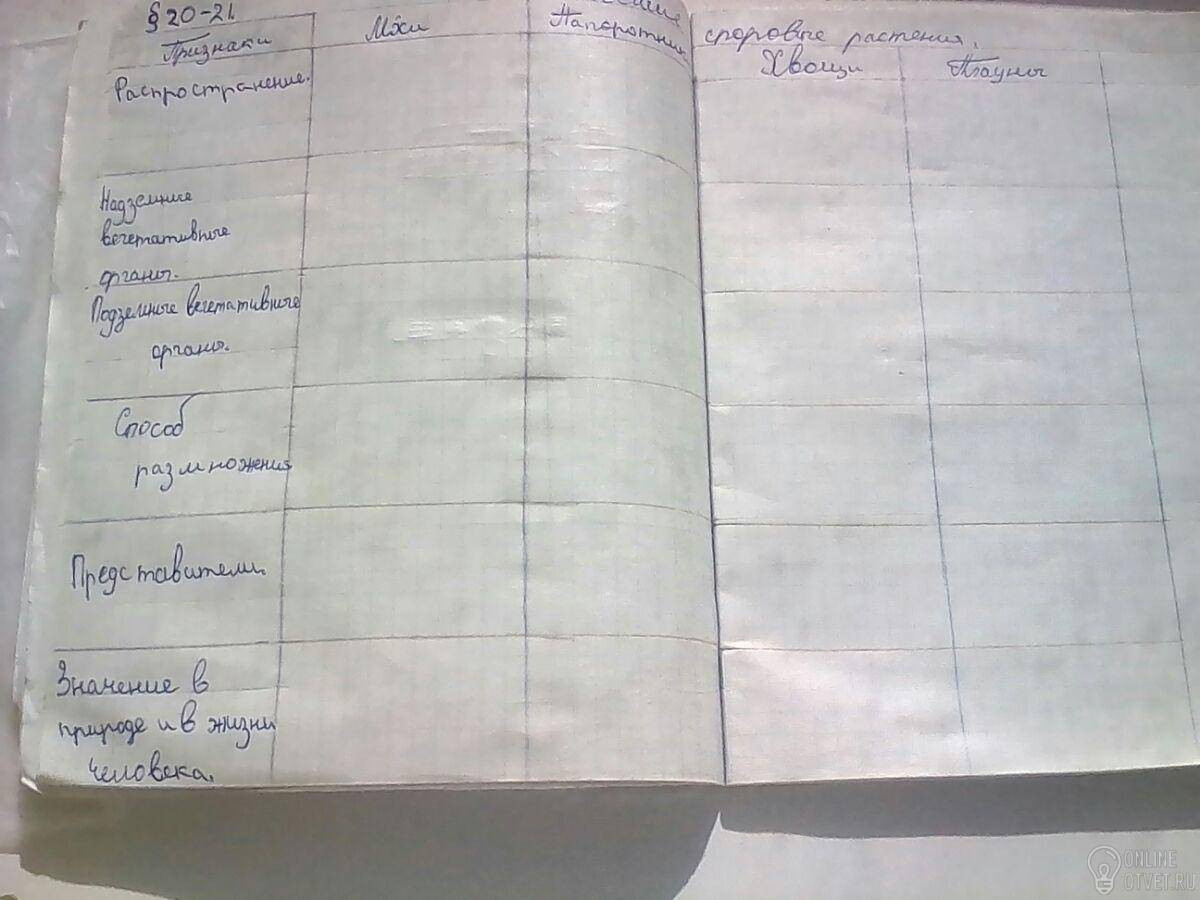 § 20-21.
споровые растения.
Признаки
Мхи
Папоротники
Хвощи
Плауны
Распространение.
Надземные
вегетативные
органы.
Подземные вегетативные
органы.
Способ
размножения
Представители.
Значение в
природе и в жизни
человека.
ONLINE
OTVET.RU